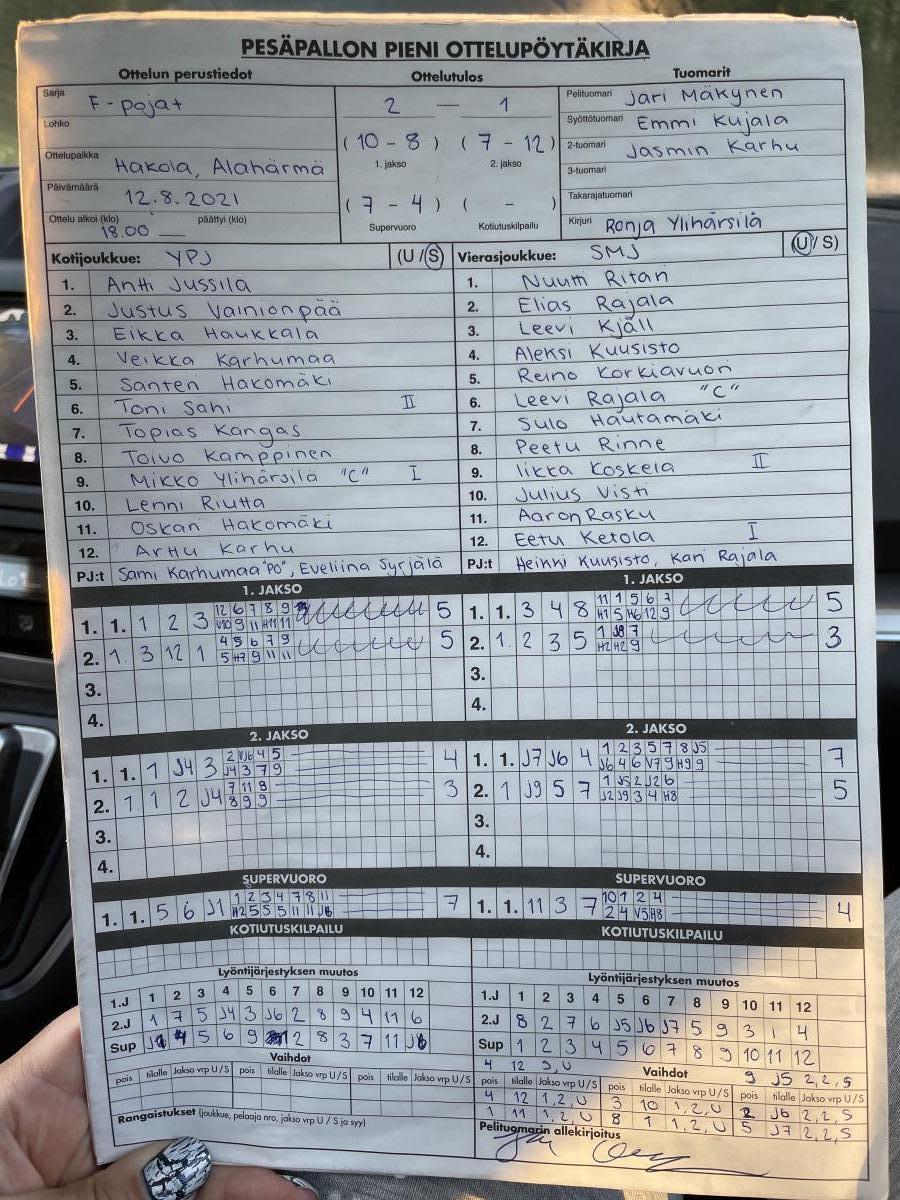 PESÄPALLON PIENI OTTELUPÖYTÄKIRJA
Ottelun perustiedot Ottelutulos Tuomarit
Sarja F-pojat
Lohko
Ottelupaikka Hakola, Alahärmä
Päivämäärä 12.8.2021
Ottelu alkoi (klo) 18.00 päättyi (klo)
2 — 1
(10 - 8) (7 - 12)
1. jakso 2. jakso
(7 - 4) ( - )
Supervuoro Kotiutuskilpailu
Pelituomari Jari Mäkynen
Syöttötuomari Emmi Kujala
2-tuomari Jasmin Karhu
3-tuomari
Takarajatuomari
Kirjuri Ronja Ylihärsilä
Kotijoukkue: YPJ (U/S)
1. Antti Jussila
2. Justus Vainionpää
3. Eikka Haukkala
4. Veikka Karhumaa
5. Santeri Hakomäki
6. Toni Sahi II
7. Topias Kangas
8. Toivo Kamppinen
9. Mikko Ylihärsilä "C" I
10. Lenni Riutta
11. Oskari Hakomäki
12. Arttu Karhu
PJ:t Sami Karhumaa "PO", Eveliina Syrjälä
Vierasjoukkue: SMJ (U/S)
1. Nuutti Ritari
2. Elias Rajala
3. Leevi Kjäll
4. Aleksi Kuusisto
5. Reino Korkiavuori
6. Leevi Rajala "C"
7. Sulo Hautamäki
8. Peetu Rinne
9. Iikka Koskela II
10. Julius Visti
11. Aaron Rasku
12. Eetu Ketola I
PJ:t Heikki Kuusisto, Kari Rajala
1. JAKSO
1. 1. 1 2 3 12 6 7 8 9 5
V10 9 11 H11 11
2. 1. 3 12 1 4 5 6 7 9 5
5 H7 9 11 11
3.
4.
1. JAKSO
1. 1. 3 4 8 11 1 5 6 7 5
H1 5 H6 12 9
2. 1. 2 3 5 1 J8 7 3
H2 H2 9
3.
4.
2. JAKSO
1. 1. 1 J4 3 2 VJ6 4 5 4
J4 3 7 9
2. 1 1 2 J4 7 11 8 3
8 9 9
3.
4.
2. JAKSO
1. 1. J7 J6 4 1 2 3 5 7 8 J5 7
J6 4 6 V7 9 H9 9
2. 1 J9 5 7 1 J5 2 J2 6 5
J2 J9 3 4 H8
3.
4.
SUPERVUORO
1. 1. 5 6 J1 1 2 3 4 7 8 11 7
H2 5 5 5 11 11 J6
KOTIUTUSKILPAILU
SUPERVUORO
1. 1. 11 3 7 10 1 2 4 4
2 4 V5 H8
KOTIUTUSKILPAILU
Lyöntijärjestyksen muutos
1.J 1 2 3 4 5 6 7 8 9 10 11 12
2.J 1 7 5 J4 3 J6 2 8 9 4 11 6
Sup J1 4 5 6 9 2 8 3 7 11 J6
Vaihdot
pois tilalle Jakso vrp U/S pois tilalle Jakso vrp U/S pois tilalle Jakso vrp U/S
Rangaistukset (joukkue, pelaaja nro, jakso vrp U / S ja syy)
Lyöntijärjestyksen muutos
1.J 1 2 3 4 5 6 7 8 9 10 11 12
2.J 8 2 7 6 J5 J6 J7 5 9 3 1 4
Sup 1 2 3 4 5 6 7 8 9 10 11 12
4 12 S, U Vaihdot 9 J5 2,2,S
pois tilalle Jakso vrp U/S pois tilalle Jakso vrp U/S pois tilalle Jakso vrp U/S
4 12 1,2,U 3 10 1,2,U 2 J6 2,2,S
1 11 1,2,U 8 1 1,2,U 5 J7 2,2,S
Pelituomarin allekirjoitus